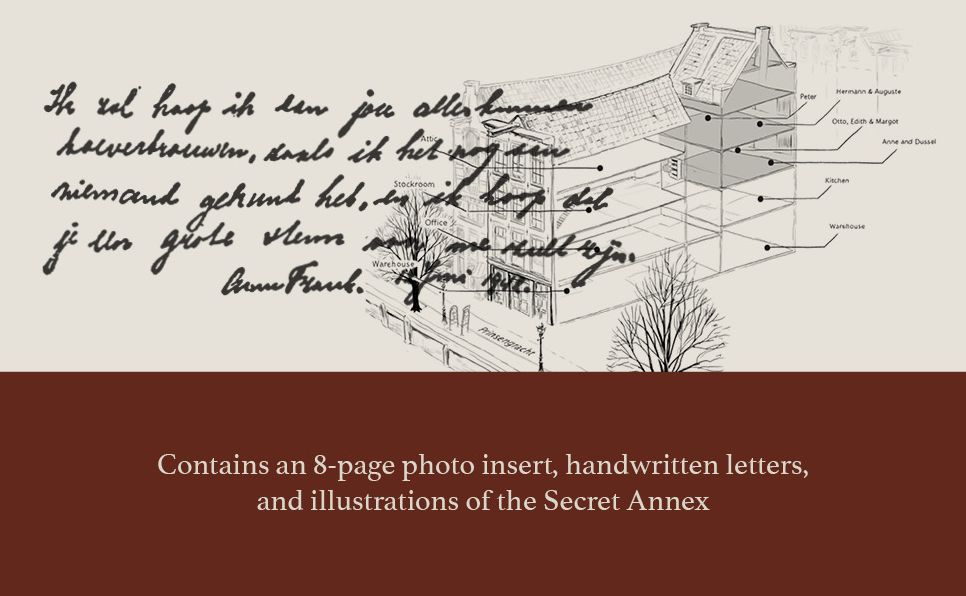 Ik zal hoop ik aan jou alles kunnen
toevertrouwen, zoals ik het nog aan
niemand gekund heb, en ik hoop dat
je een grote steun van me zult zijn.
Anne Frank. 12 Juni 1942.
Peter
Hermann & Auguste
Otto, Edith & Margot
Anne and Dussel
Kitchen
Warehouse
Attic
Stockroom
Office
Warehouse
Prinsengracht
Contains an 8-page photo insert, handwritten letters,
and illustrations of the Secret Annex